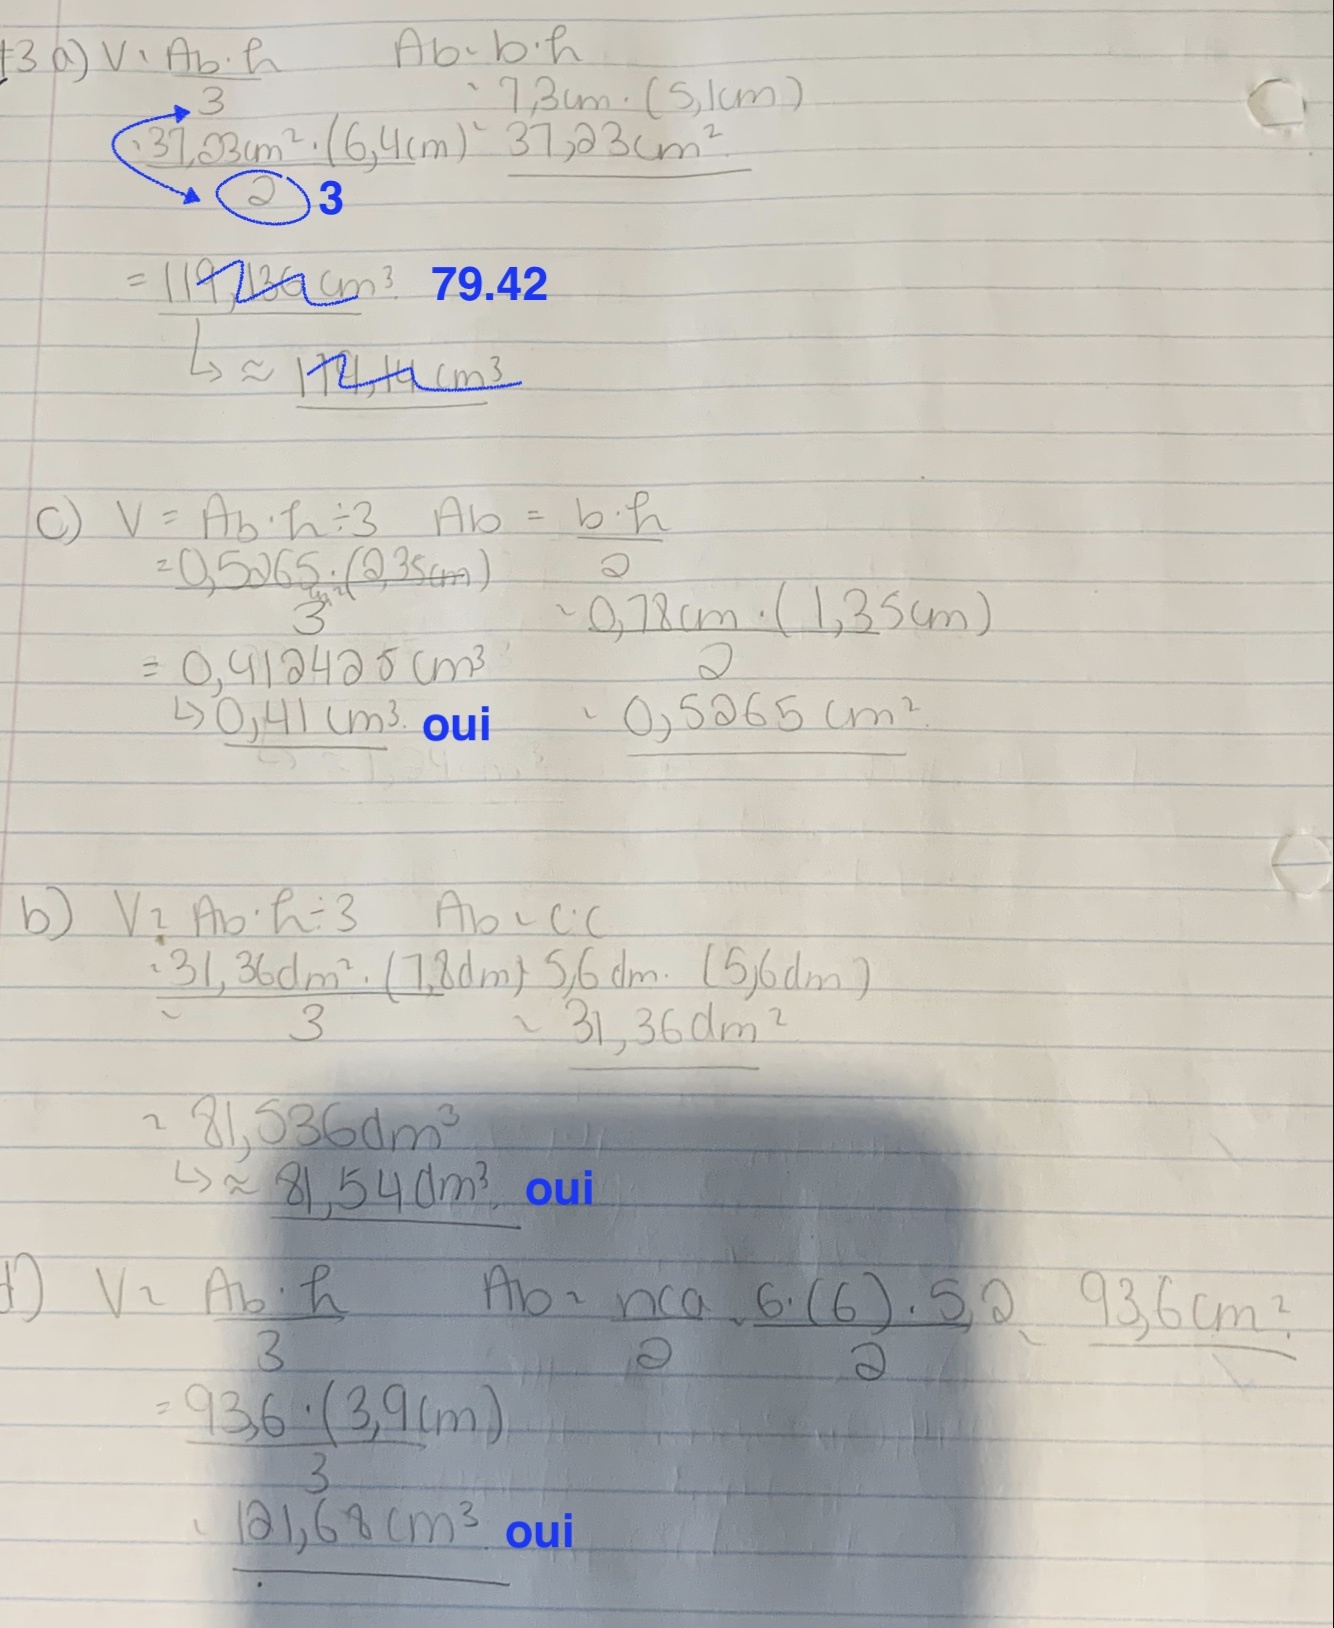 #3 a) V = Ab·h Ab = b·h
3 = 7,3cm·(5,1cm)
= 37,23cm²·(6,4cm) = 37,23cm²
2 3
= 119,136cm³ 79.42
↳ ≈ cm³
c) V = Ab·h÷3 Ab = b·h
2
= 0,5265cm²·(2,35cm)
3
= 0,78cm·(1,35cm)
2
= 0,412425cm³
↳ 0,41cm³. oui = 0,5265cm².
b) V = Ab·h÷3 Ab = c·c
= 31,36dm²·(7,8dm) = 5,6dm·(5,6dm)
3 = 31,36dm²
= 81,536dm³
↳ ≈ 81,54dm³. oui
d) V = Ab·h Ab = nca = 6·(6)·5,2 = 93,6cm².
3 2 2
= 93,6·(3,9cm)
3
= 121,68cm³. oui